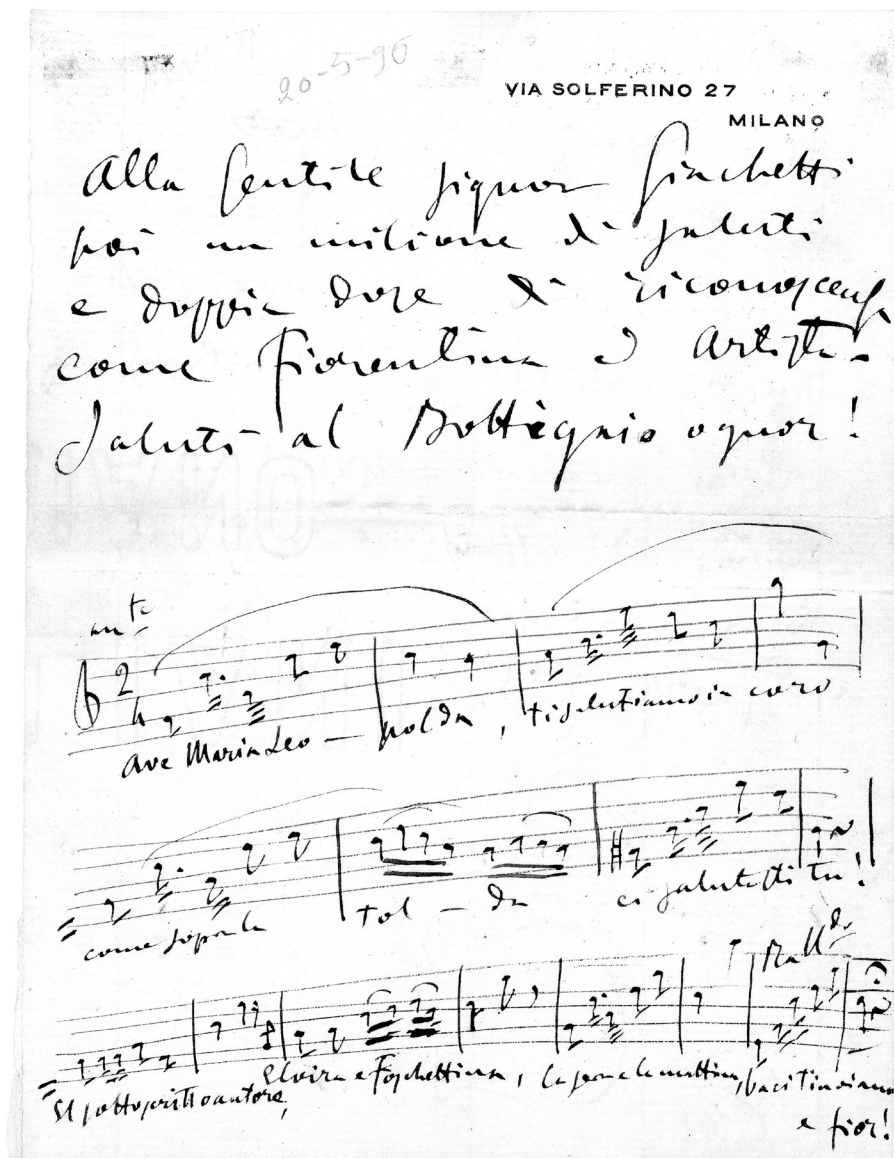 20-5-96
VIA SOLFERINO 27
MILANO
Alla gentile signora Giachetti
poi un milione di saluti
e doppia dose di riconoscenza
come Fiorentina ed Artista.
Saluti al Bottegaio ognor!
And.te
Ave Maria Leo — polda, ti salutiamo in coro
come sopra la
tol — da ci saluti di tu!
Rall.do
Il sottoscritto autore, Elvira e Foschettina, la sera e la mattina, baci ti inviano
e fior!